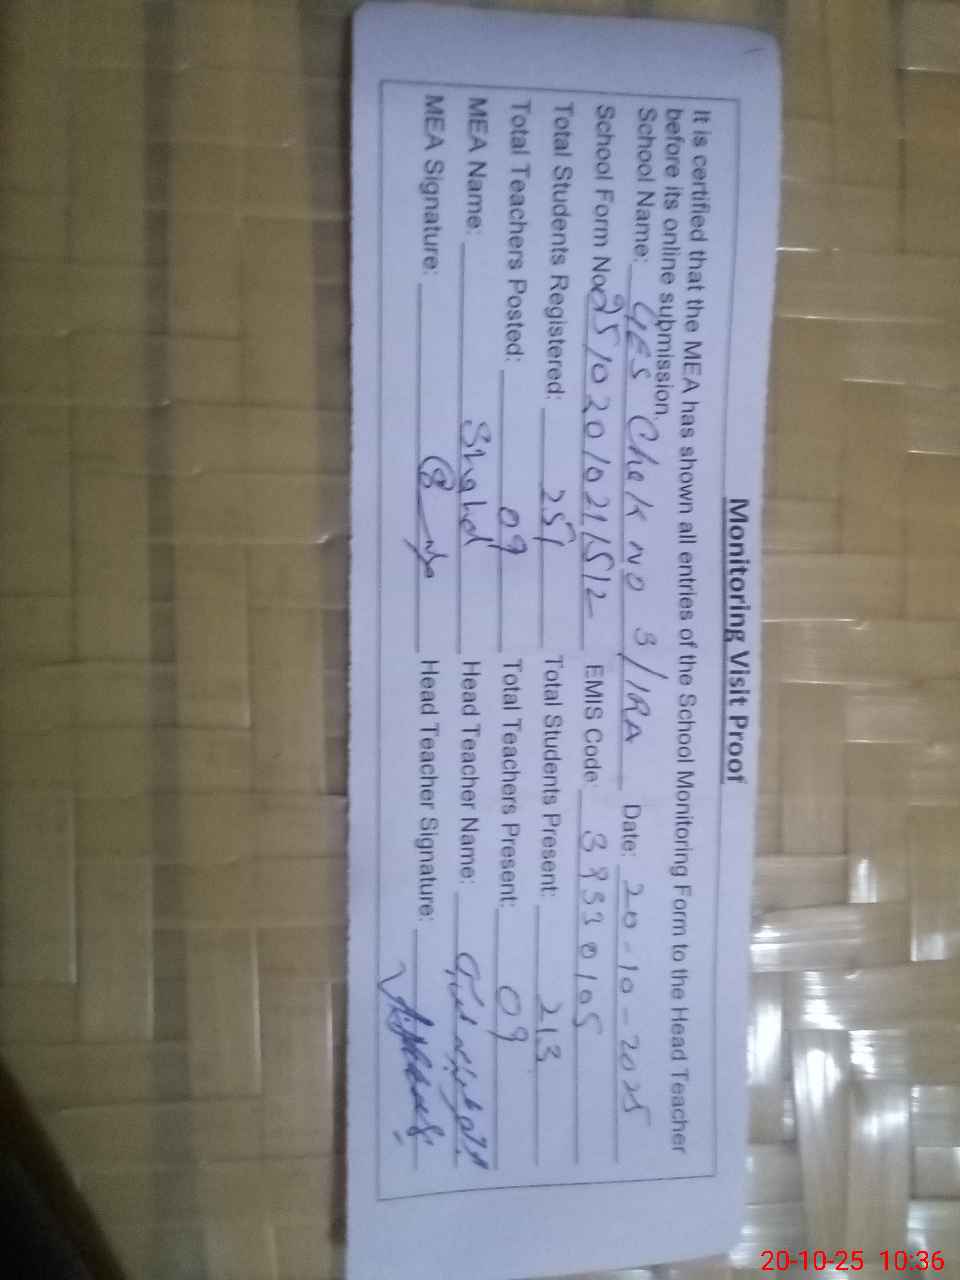 Monitoring Visit Proof
It is certified that the MEA has shown all entries of the School Monitoring Form to the Head Teacher
before its online submission.
School Name: GES Chak no 3/1RA Date: 20-10-2025
School Form No: 2510201021512 EMIS Code: 39330105
Total Students Registered: 251 Total Students Present: 213
Total Teachers Posted: 09 Total Teachers Present: 09
MEA Name: Shahd Head Teacher Name:
MEA Signature: Head Teacher Signature:
20-10-25 10:36